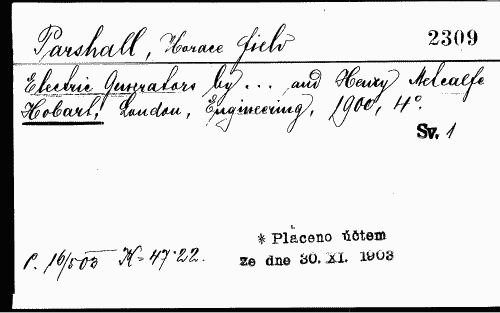 Parshall, Horace Field 2309
Electric Generators by ... and Henry Metcalfe
Hobart, London, Engineering, 1900, 4°.
Sv. 1
* Pláceno účtem
P. 16/503 K=47·22. ze dne 30. XI. 1903